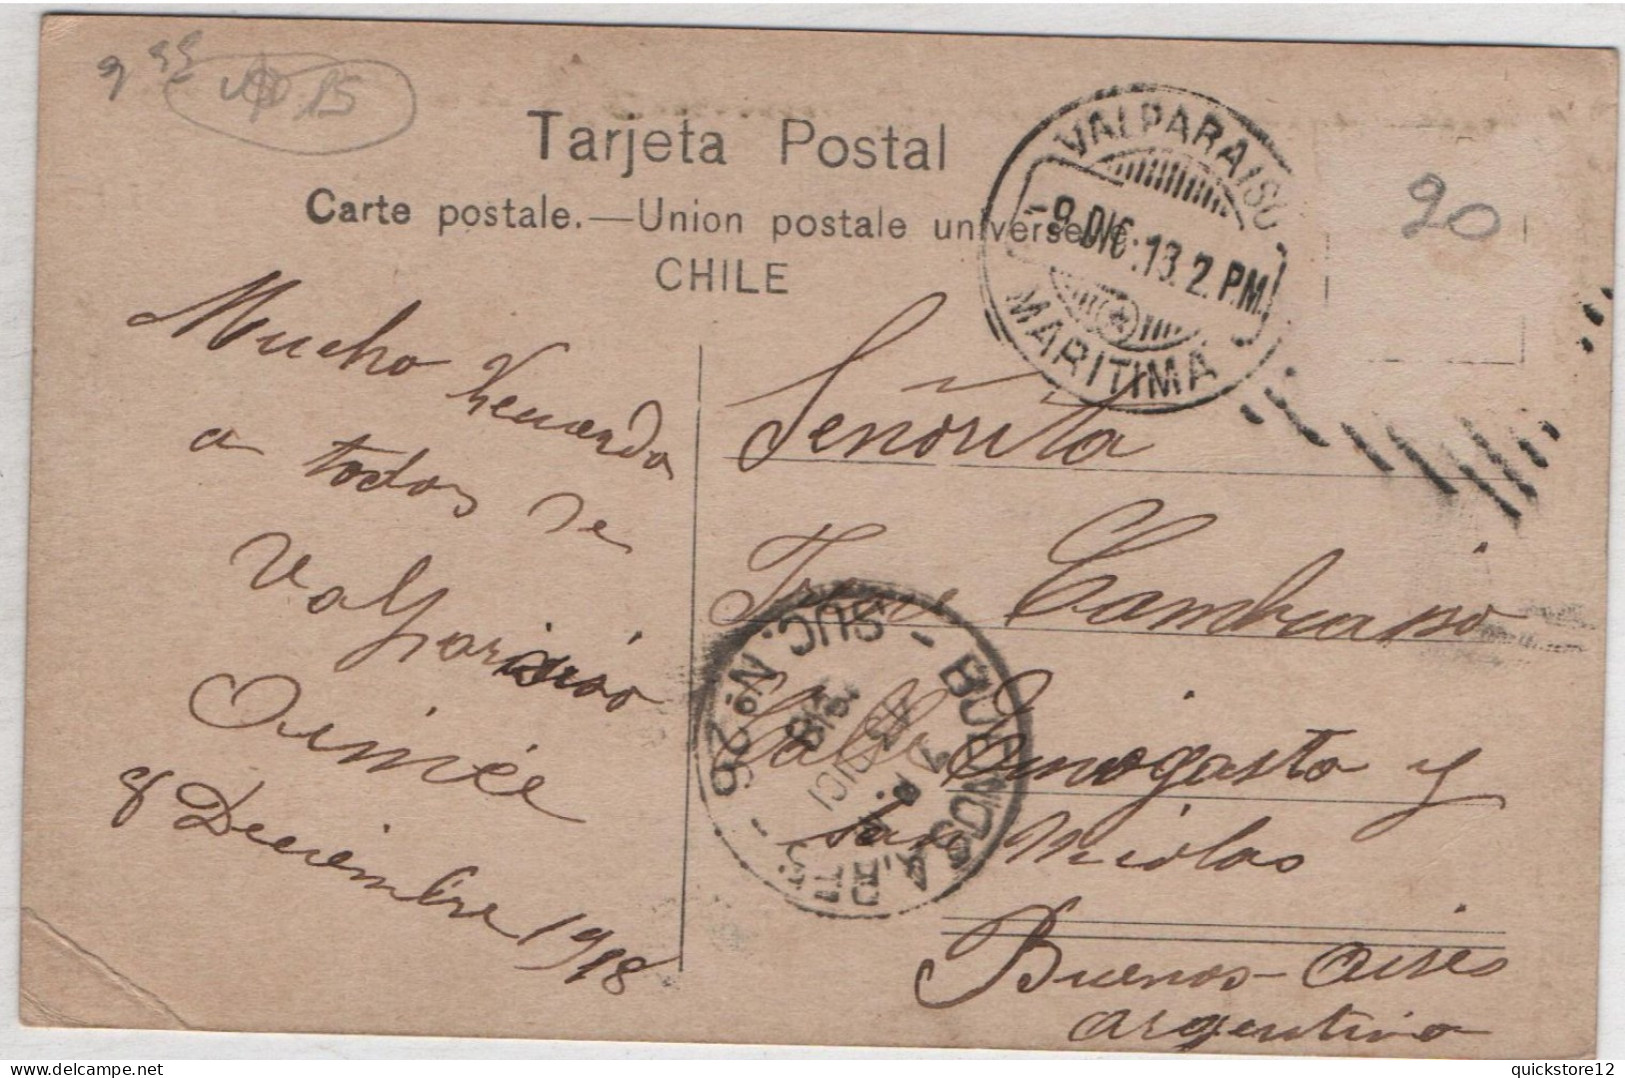 9 99
15
Tarjeta Postal
Carte postale.—Union postale universelle
CHILE
VALPARAISO
-9.DIC.13.2 P.M.
MARITIMA
20
Mucho recuerdo
a todos de
Valparaiso
Aimée
8 Deciembre 1918
Señorita
Cambiaso
Calle Amogasta y
San Nicolas
Buenos-Aires
Argentina
BUENOS AIRES
SUC. Nº 26
quickstore12